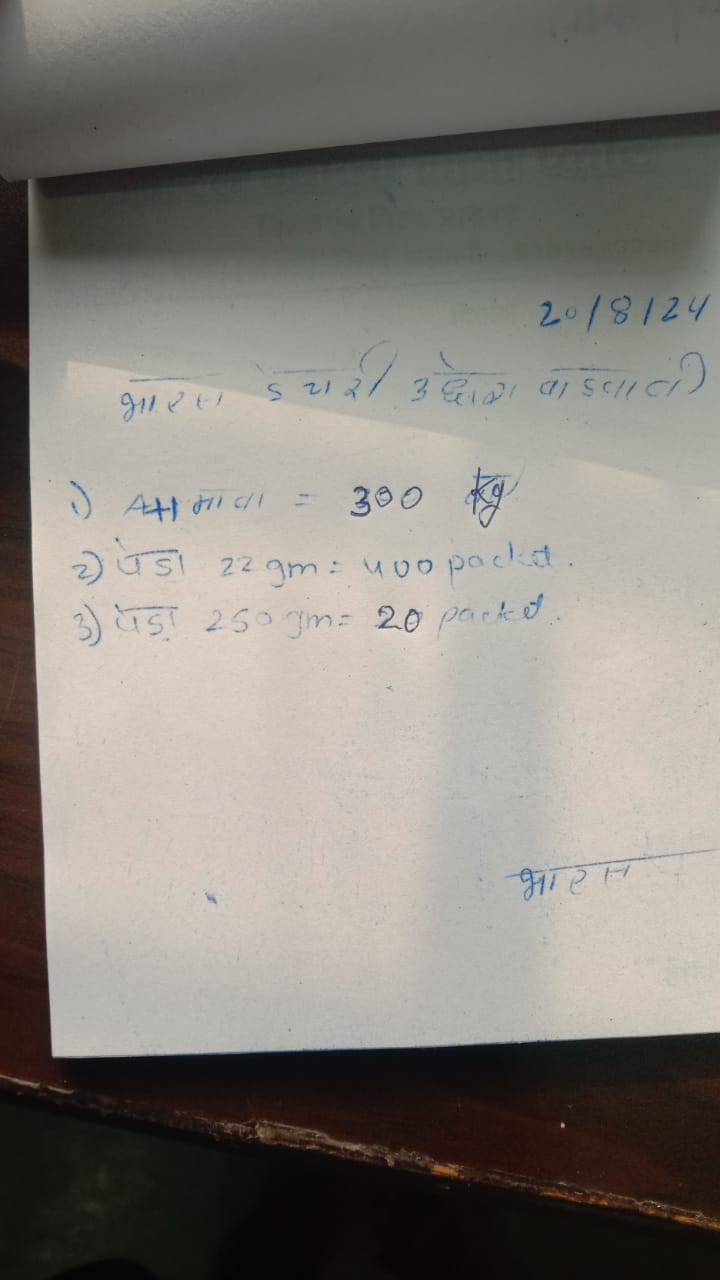 20/8/24
भारत डयरी उद्दोग वाडवाती
1) A++ मावा = 300 kg
2) पेडा 22 gm = 400 packet.
3) पेडा 250 gm = 20 packet.
भारत